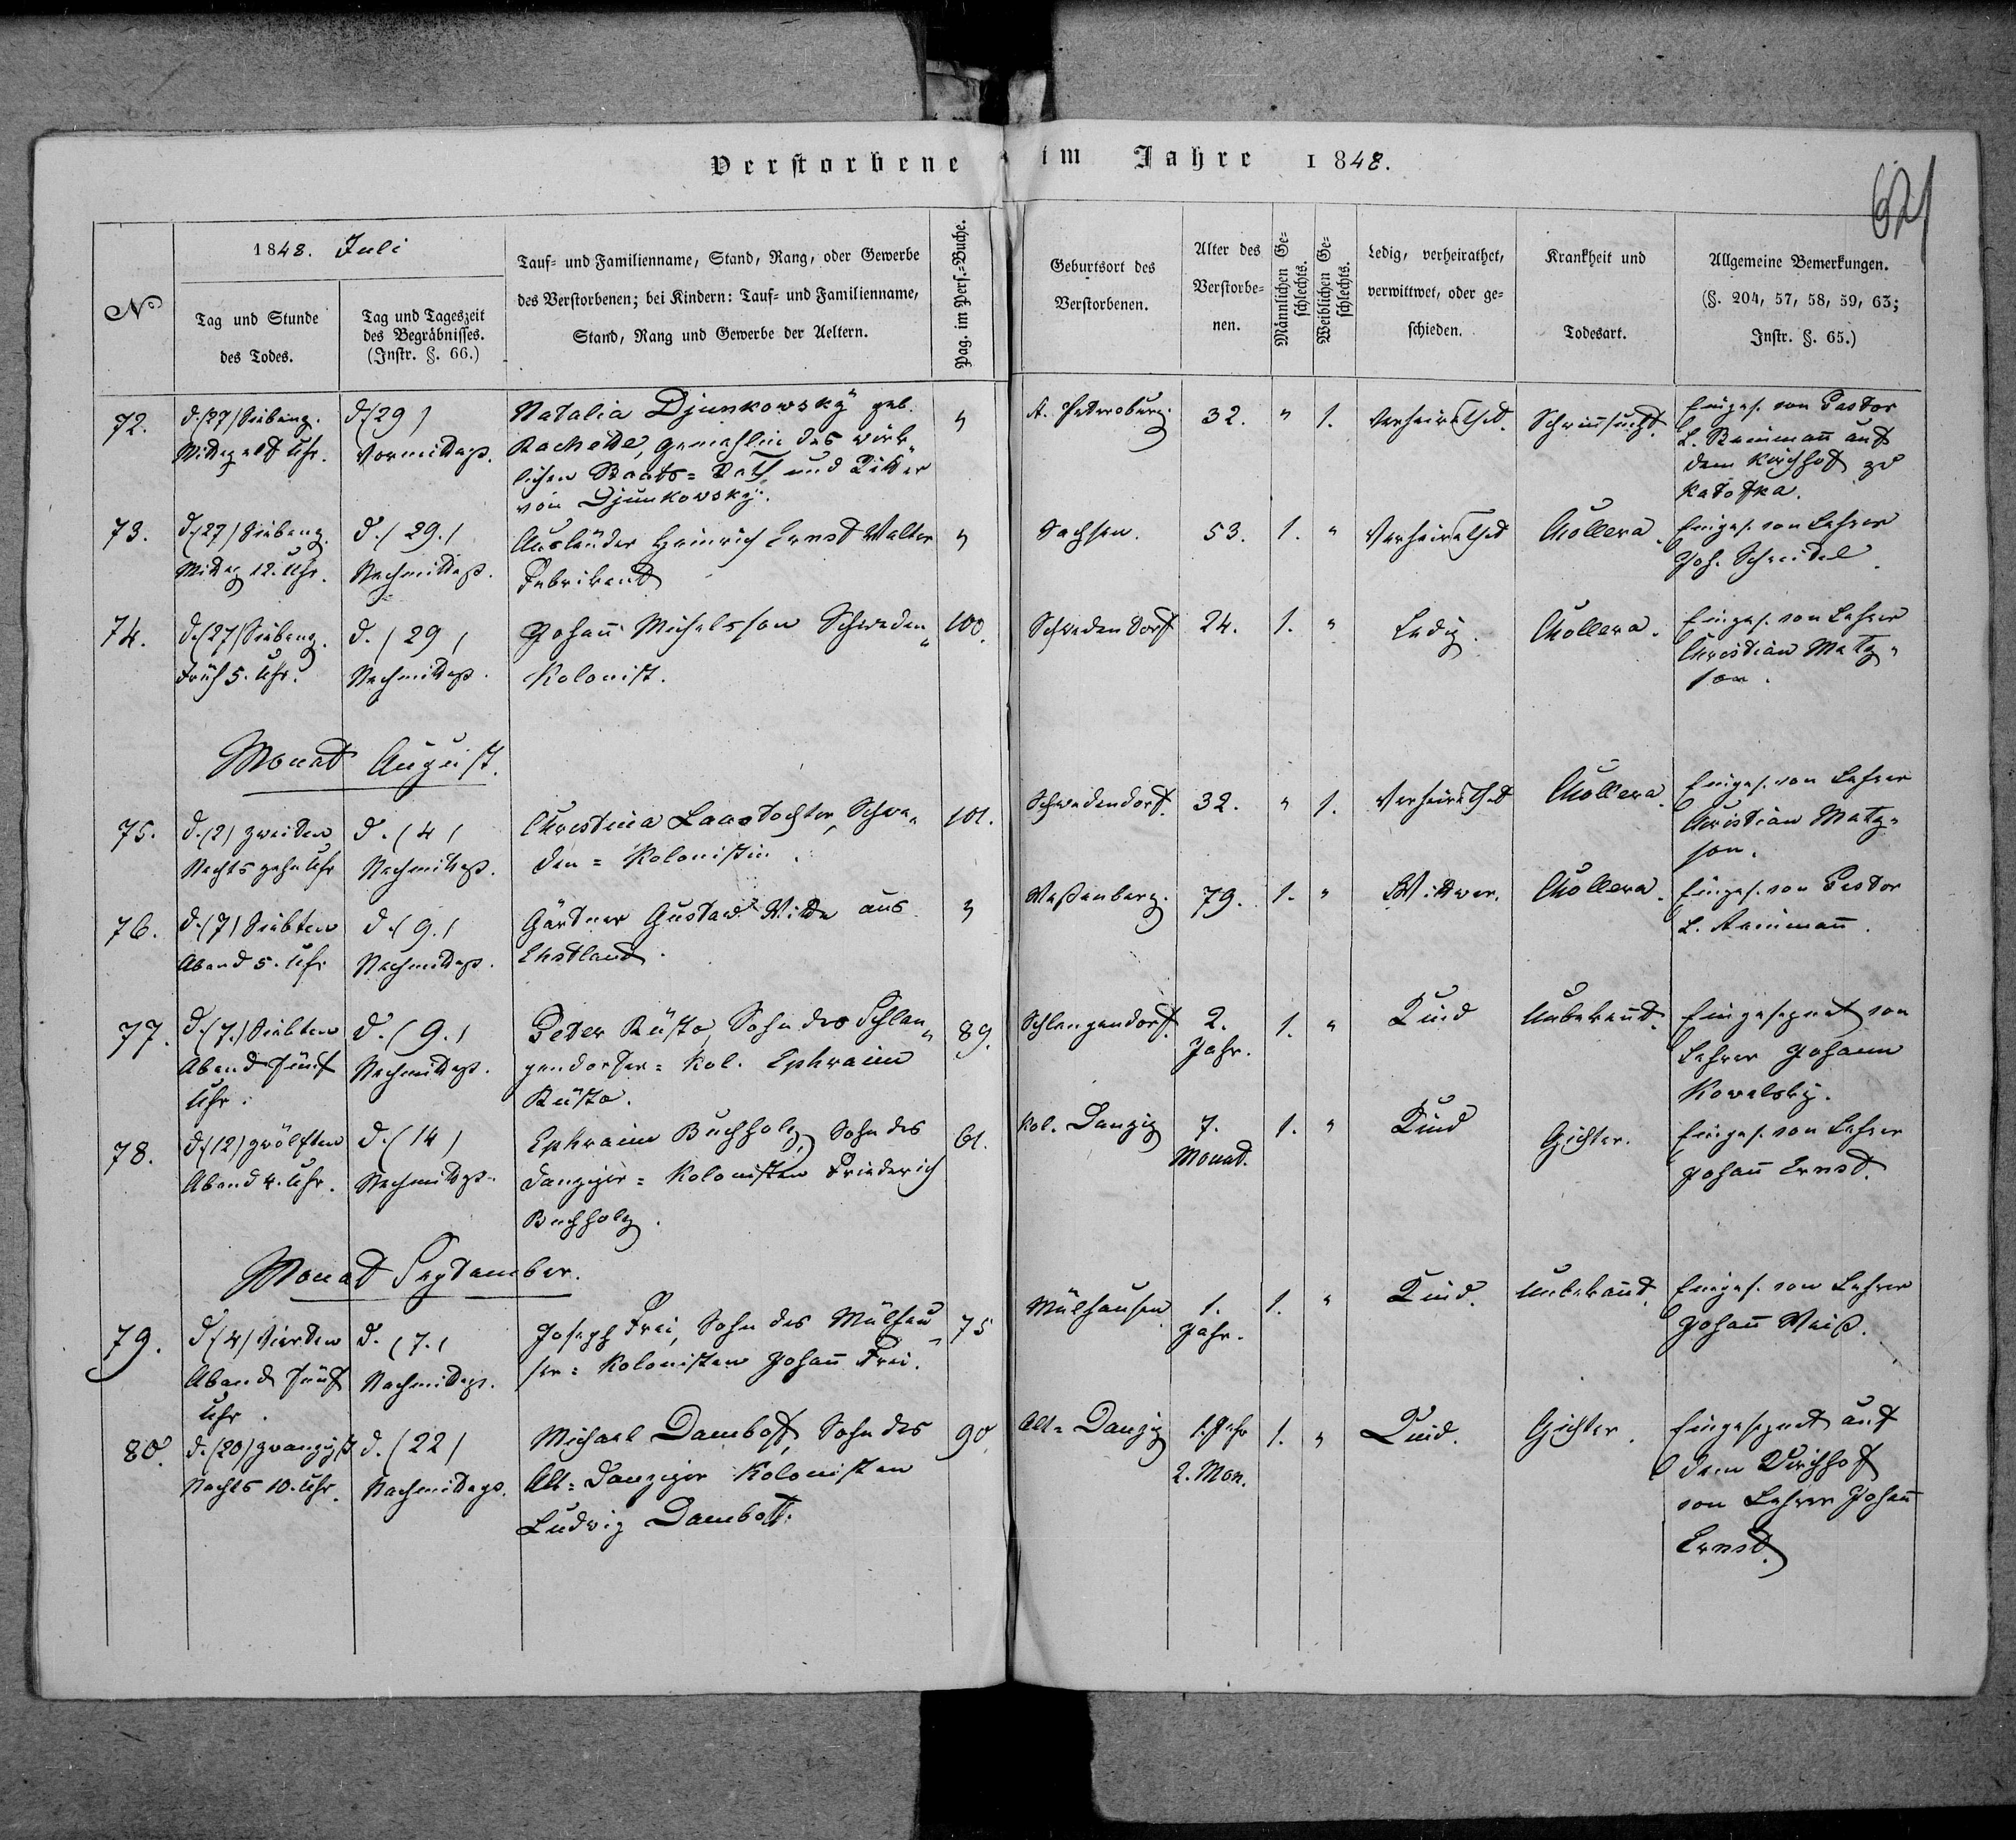 Verstorbene im Jahre 1848.
621
No
1848. Juli
Tag und Stunde
des Todes.
Tag und Tageszeit
des Begräbnisses.
(Instr. §. 66.)
Tauf- und Familienname, Stand, Rang, oder Gewerbe
des Verstorbenen; bei Kindern: Tauf- und Familienname,
Stand, Rang und Gewerbe der Aeltern.
Pag. im Pers.-Buche.
Geburtsort des
Verstorbenen.
Alter des
Verstorbe-
nen.
Männlichen Ge-
schlechts.
Weiblichen Ge-
schlechts.
Ledig, verheirathet,
verwittwet, oder ge-
schieden.
Krankheit und
Todesart.
Allgemeine Bemerkungen.
(§. 204, 57, 58, 59, 63;
Instr. §. 65.)
72.
d. (27) Siebenz.
Mittag Uhr.
d. (29)
Vormittags.
Natalia Djunkowsky geb.
Rachette, Gemahlin des wirk-
lichen Staats=Rath und Ritter
von Djunkowsky.
"
St. Petersburg.
32.
"
1.
Verheirathet.
Schwinsucht.
Einges. von Pastor
L. Reimann auf
dem Kirchhof zu
Katofka.
73.
d. (27) Siebenz.
Mittag 12. Uhr.
d. (29.)
Nachmittags.
Ausländer Heinrich Ernst Walter
Fabrikant
"
Sachsen.
53.
1.
"
Verheirathet
Chollera.
Einges. von Lehrer
Joh. Schreidel.
74.
d. (27) Siebenz.
Früh 5. Uhr.
d. (29)
Nachmittags.
Johann Michelsson Schweden-
Kolonist.
100.
Schwedendorf
24.
1.
"
Ledig.
Chollera.
Einges. von Lehrer
Christian Matz-
son.
Monat August.
75.
d. (2) zweiten
Nachts zehn Uhr
d. (4)
Nachmittags.
Christina Laastochter, Schwe-
den=Kolonistin.
101.
Schwedendorf.
32.
"
1.
Verheirathet
Chollera.
Einges. von Lehrer
Christian Matz-
son.
76.
d. (7) Siebten
Abend 5. Uhr
d. (9.)
Nachmittags.
Gärtner Gustav Witte aus
Ehstland.
"
Weßenberg.
79.
1.
"
Wittwer.
Chollera.
Einges. von Pastor
L. Reimann.
77.
d. (7.) Siebten
Abend fünf
Uhr.
d. (9.)
Nachmittags.
Peter Küsta, Sohn des Schlan-
gendorfer=Kol. Ephraim
Küsta.
89.
Schlangendorf.
2.
Jahr.
1.
"
Kind
Unbekannt.
Eingesegnet von
Lehrer Johann
Kowalsky.
78.
d. (12) zwölften
Abend 4. Uhr.
d. (14)
Nachmittags.
Ephraim Buchholz, Sohn des
Danziger=Kolonisten Friederich
Buchholz.
61.
Kol. Danzig
7.
Monat.
1.
"
Kind
Gichter.
Einges. von Lehrer
Johann Ernst.
Monat September.
79.
d. (4) Vierten
Abend fünf
Uhr.
d. (7.)
Nachmittags.
Joseph Frei, Sohn des Mülhau-
ser=Kolonisten Johann Frei.
75
Mülhausen
1.
Jahr.
1.
"
Kind.
Unbekannt.
Einges. von Lehrer
Johann Weiß.
80.
d. (20) zwanzigst
Nachts 10. Uhr.
d. (22)
Nachmittags.
Michael Damboff, Sohn des
Alt=Danziger Kolonisten
Ludwig Damboff.
90.
Alt=Danzig
1. Jahr
2. Mon.
1.
"
Kind.
Gichter.
Eingesegnet auf
dem Kirchhof
von Lehrer Johann
Ernst.